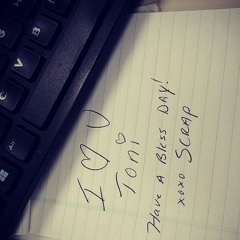 I ♡ U
Toni
Have A Bless DAY!
xoxo SCRAP
V
B
C
Alt